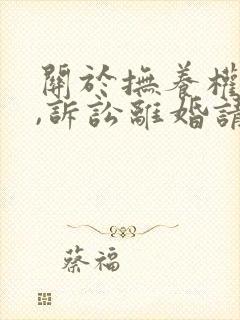 關於撫養權
,訴訟離婚請
蔡福